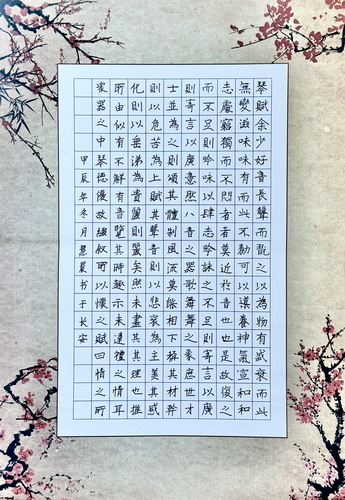 琴賦余少好音長聲而翫之以為物有盛衰而此
無變滋味味有而此不勌可以導養神氣宣和和
志處窮獨而不悶者者莫近於音也也是故復之
而不足則吟味以肆志吟詠之不足則寄言以廣
則寄言以廣意然八音之器歌舞舞之象歷世才
士並為之則頌其體制風流莫能相下極其材幹
則以危苦為上賦其聲音則以悲哀為主美其感
化則以垂涕為貴麗則麗矣然未盡其其理也推
所由似有不解有音覽其時趣示未達禮之情耳
眾器之中琴德優故綴叙可以懷之賦曰情之所
甲辰年冬月慧书于长安